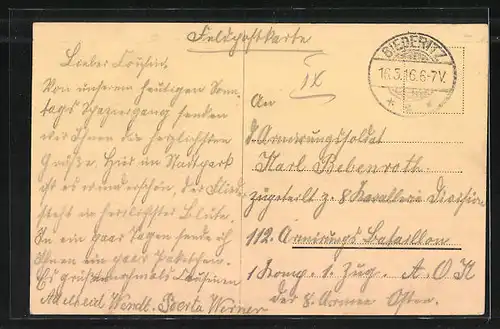 Feldpostkarte
BIEDERITZ
16.5.16.6-7V.
Lieber Cousin.
Von unserem heutigen Sonn-
tags Spaziergang senden
wir Ihnen die herzlichsten
Grüße. Hier im Stadtpark
ist es wunderschön, der Flieder
steht in herrlichster Blüte.
In ein paar Tagen sende ich
Ihnen ein paar
Es grüßt nochmals Cousinen
Adelheid Wendt. Berta Werner
IX
An
d. Armirungssoldat
Karl Bebenroth
zugeteilt z. 8 Kavallerie Division
112. Armirungs Bataillon
1 Komp. 1. Zug. A. O. K
der 8. Armee Osten.